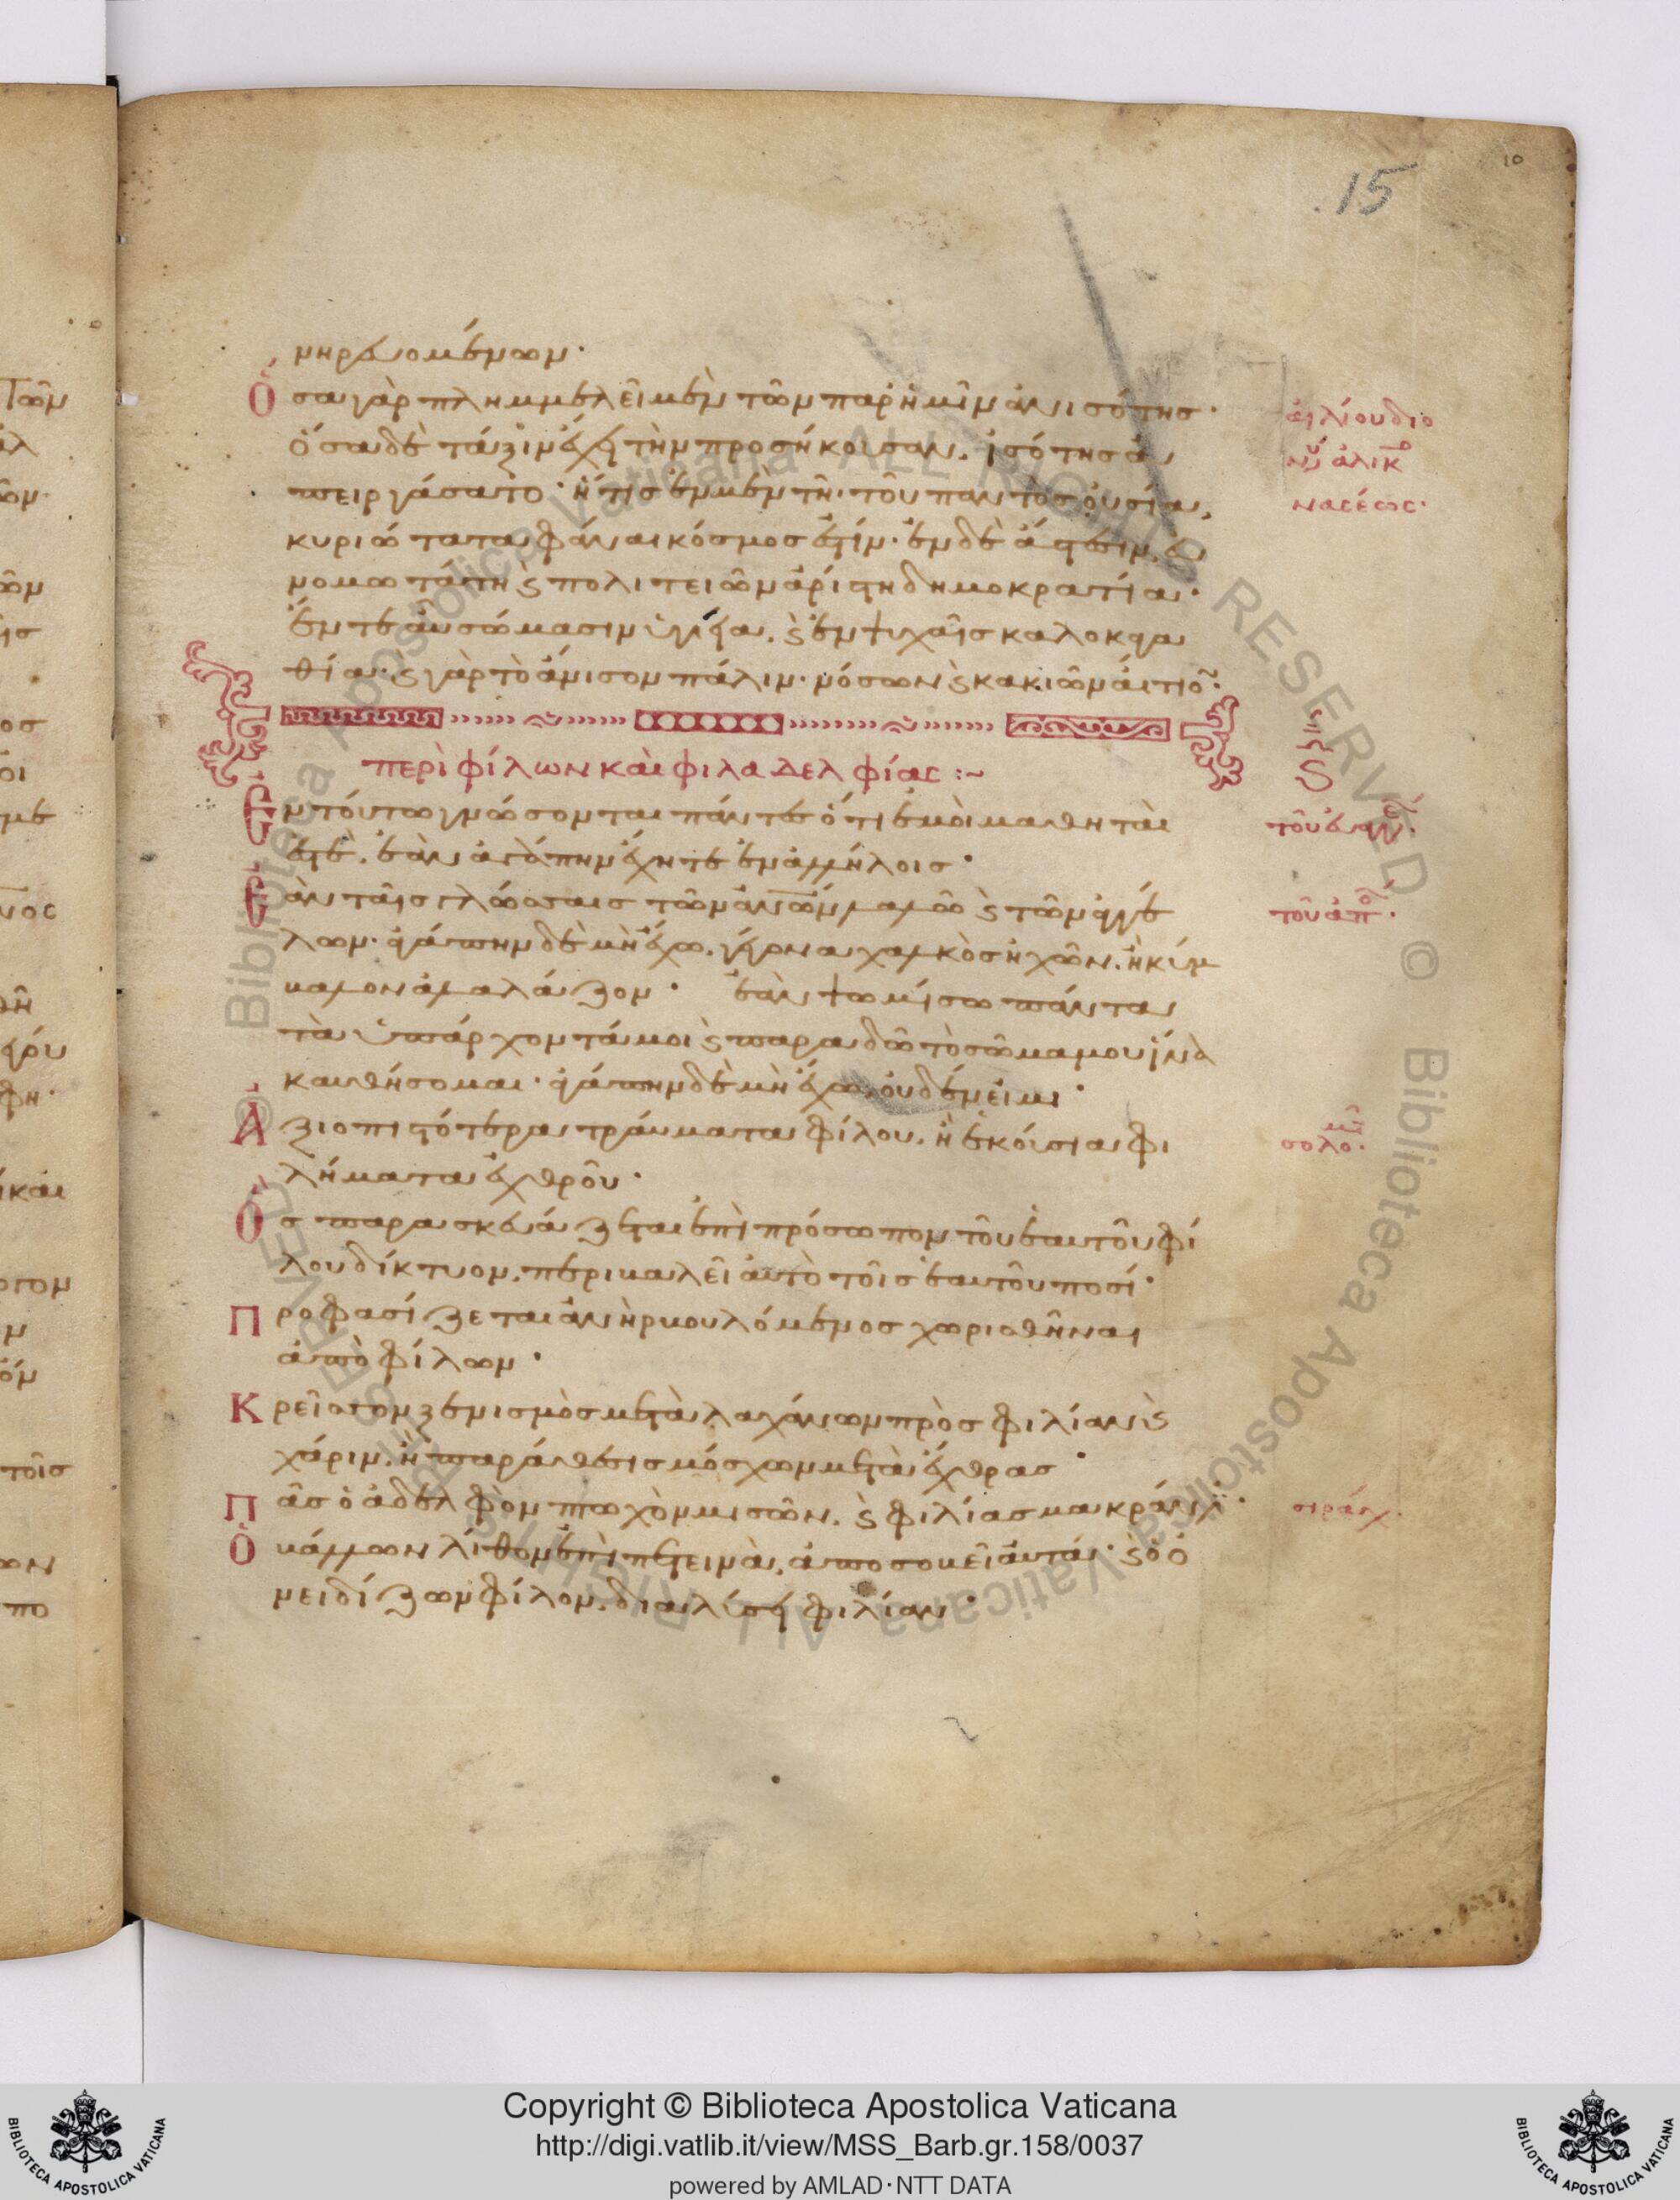 10
15
νηρευομένων·
Ὅσα γὰρ πλημμελεῖ μὲν τῶν παρ' ἡμῖν ἀνισότης·
ὅσα δὲ τάξιν ἔχει τὴν προσήκουσαν, ἰσότησ ἀ
πειργάσατο· ἥτισ ἐν μὲν τῆι τοῦ παντὸς οὐσία,
κυριώτατα φάναι κόσμοσ ἐστίν· ἐν δὲ ἄστεσιν, εὐ
νομωτάτη ϗ πολιτειῶν ἀρίστη δημοκρατία·
ἔν τε αὖ σώμασιν ὑγεία, ϗ ἐν ψυχαῖσ καλοκαγα
θία· ϗ γὰρ τὸ ἄνισον πάλιν· νόσων ϗ κακιῶν αἴτιο͂·
περὶ φίλων καὶ φιλαδελφίας :~
Ἐν τούτω γνώσονται πάντεσ ὅτι ἐμοὶ μαθηταὶ
ἐστὲ, ἐὰν ἀγάπην ἔχητε ἐν ἀλλήλοισ·
Ἐὰν ταῖσ γλώσσαισ τῶν ἀν̅ω̅ν λαλῶ ϗ τῶν ἀγγέ
λων· ἀγάπην δὲ μὴ ἔχω, γέγονα χαλκὸσ ἠχῶν, ἢ κύμ
βαλον ἀλαλάζον· ἐὰν ψωμίσω πάντα
τὰ ὑπάρχοντά μοι ϗ παραδῶ τὸ σῶμα μου ἵνα
καυθήσομαι· ἀγάπην δὲ μὴ ἔχω, οὐδέν εἰμι·
Ἀξιοπιστότερα τραύματα φίλου, ἢ ἑκούσια φι
λήματα ἐχθροῦ·
Ὃσ παρασκευάζεται ἐπὶ πρόσωπον τοῦ ἑαυτοῦ φί
λου δίκτυον, περιβαλεῖ αὐτὸ τοῖσ ἑαυτοῦ ποσί·
Προφασίζεται ἀνὴρ βουλόμενοσ χωρισθῆναι
ἀπὸ φίλων·
Κρεῖσσον ξενισμὸσ μετὰ λαχάνων πρὸσ φιλίαν ϗ
χάριν, ἢ παράθεσισ μόσχων μετὰ ἔχθρασ·
Πᾶσ ὁ ἀδελφὸν πτωχὸν μισῶν, ϗ φιλίασ μακράν·
Ὁ βάλλων λίθον ἐπὶ πετεινὰ, ἀποσοβεῖ αὐτά· ϗ ὁ ὀ
νειδίζων φίλον, διαλύσει φιλίαν·
αἰλίου διο
νυ ἁλικ
νασέως·
τοῦ εὐαγγ·
τοῦ ἀπ·
σολο·
σιράχ·
Copyright © Biblioteca Apostolica Vaticana
http://digi.vatlib.it/view/MSS_Barb.gr.158/0037
powered by AMLAD·NTT DATA
BIBLIOTECA APOSTOLICA VATICANA
BIBLIOTECA APOSTOLICA VATICANA